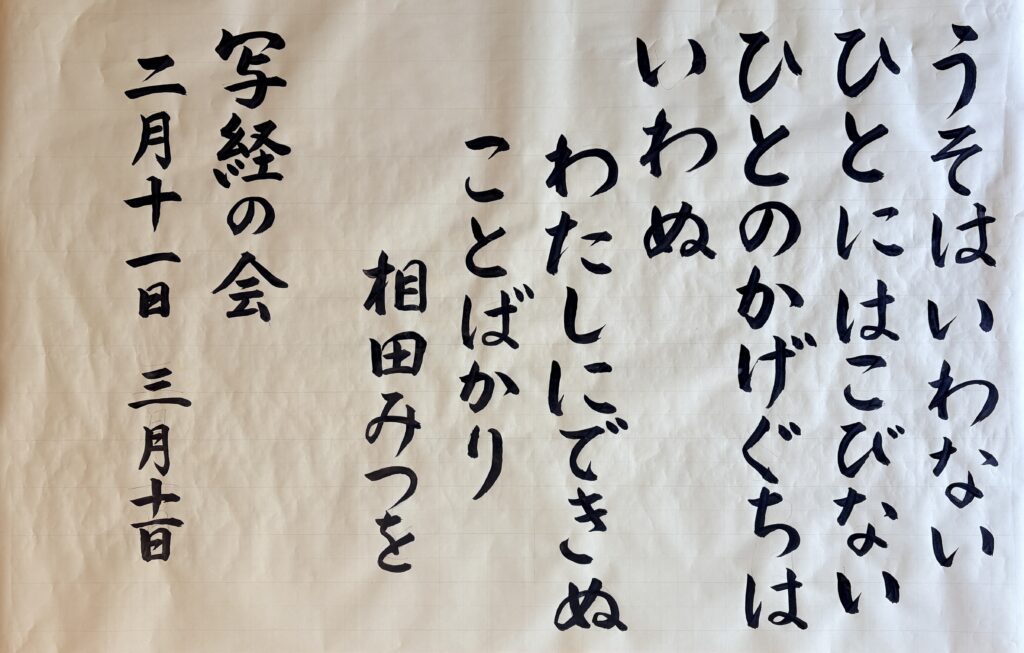 うそはいわない
ひとにはこびない
ひとのかげぐちは
いわぬ
わたしにできぬ
ことばかり
相田みつを
写経の会
二月十一日 三月十一日